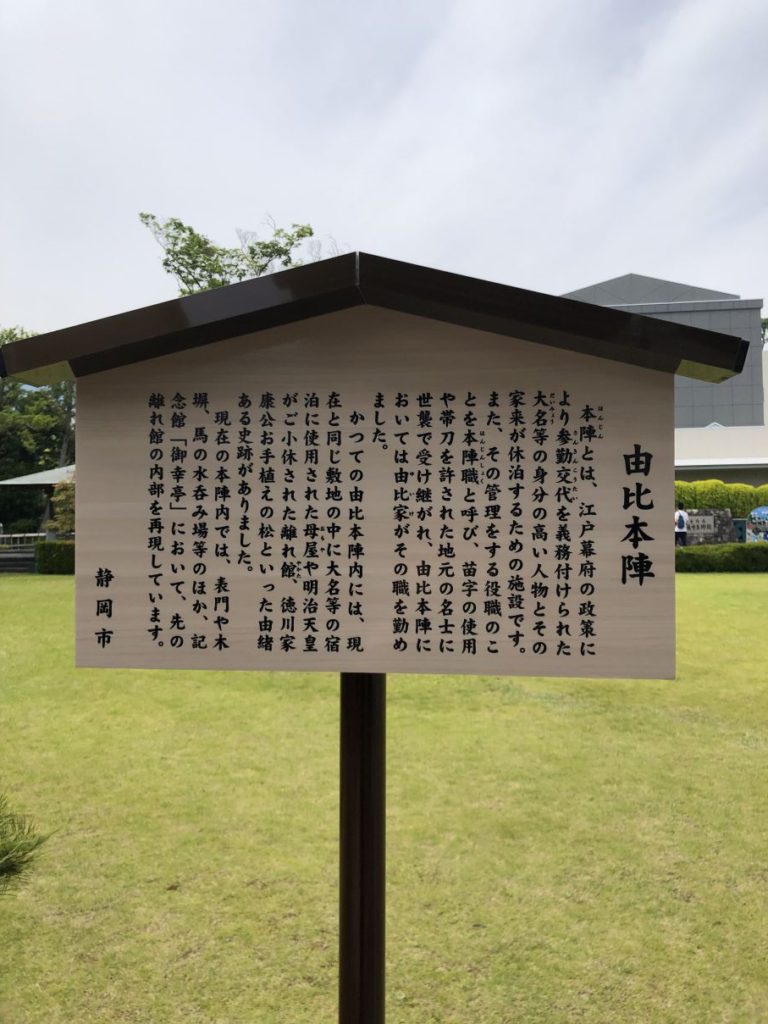 由比本陣
本陣とは、江戸幕府の政策に
より参勤交代を義務付けられた
大名等の身分の高い人物とその
家来が休泊するための施設です。
また、その管理をする役職のこ
とを本陣職と呼び、苗字の使用
や帯刀を許された地元の名士に
世襲で受け継がれ、由比本陣に
おいては由比家がその職を勤め
ました。
かつての由比本陣内には、現
在と同じ敷地の中に大名等の宿
泊に使用された母屋や明治天皇
がご小休された離れ館、徳川家
康公お手植えの松といった由緒
ある史跡がありました。
現在の本陣内では、表門や木
塀、馬の水呑み場等のほか、記
念館「御幸亭」において、先の
離れ館の内部を再現しています。
静岡市